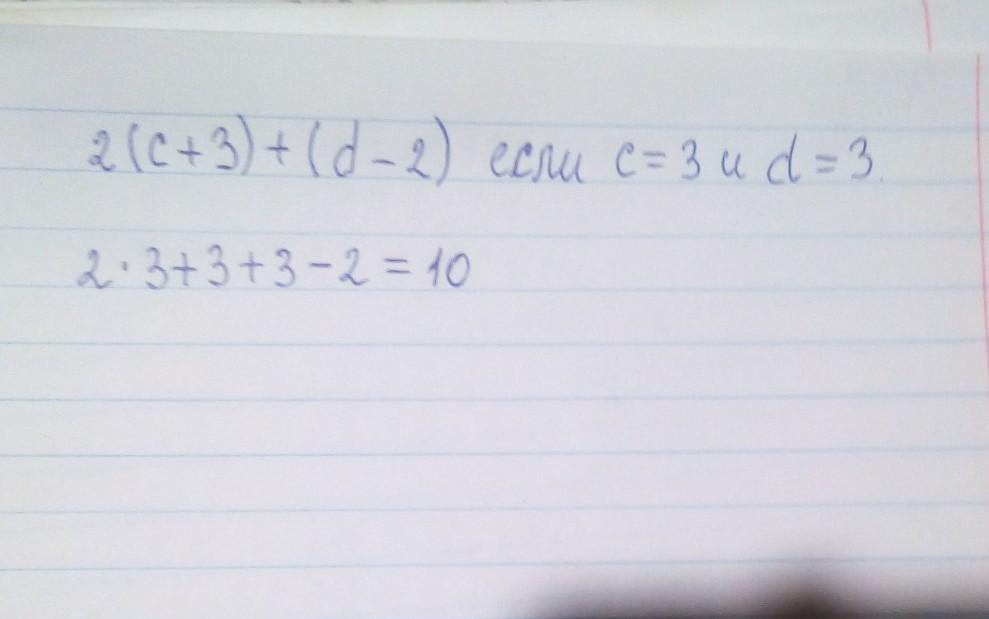 2(c+3)+(d-2) если c=3 и d=3.
2·3+3+3-2=10